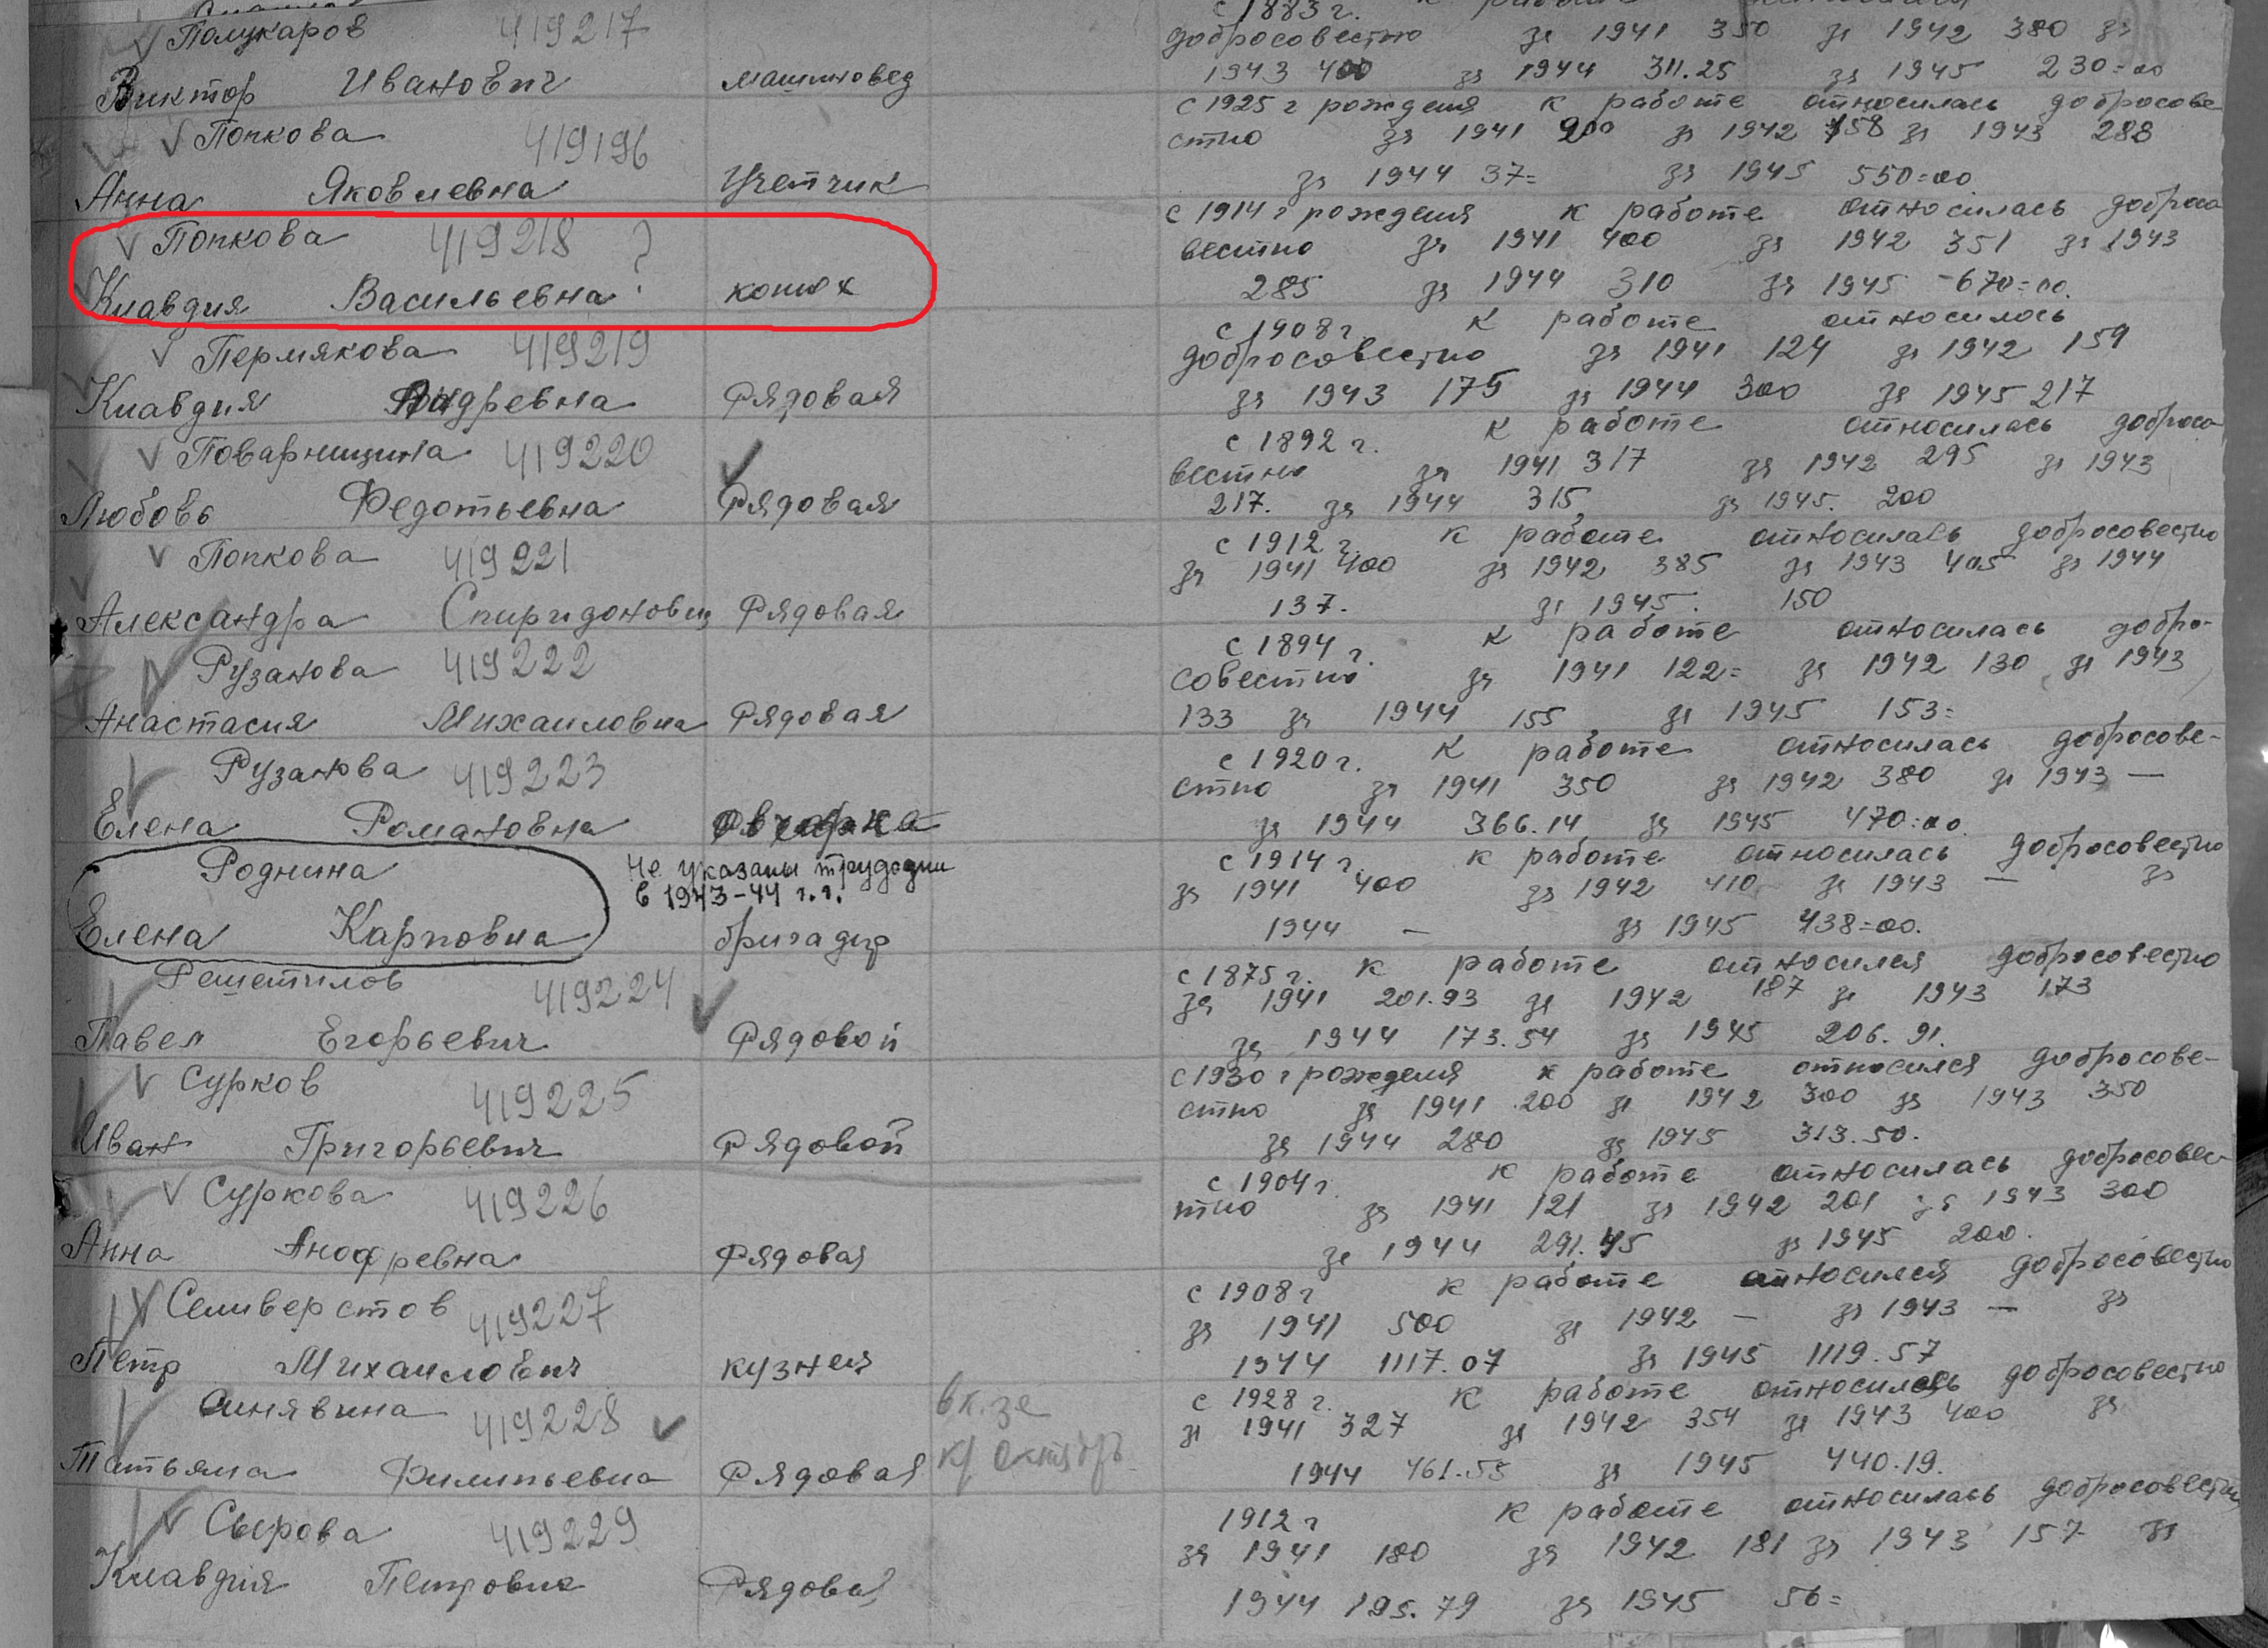 Полукаров 419217
Виктор Иванович машиновед
с 1883 г. к работе
добросовестно за 1941 350 за 1942 380 за
1943 400 за 1944 311.25 за 1945 230=00
Попкова 419196
Анна Яковлевна Учетчик
с 1925 г рождения к работе относилась добросове
стно за 1941 200 за 1942 158 за 1943 288
за 1944 37= за 1945 550=00
Попкова 419218 ?
Клавдия Васильевна конюх
с 1914 г рождения к работе относилась добросо
вестно за 1941 400 за 1942 351 за 1943
285 за 1944 310 за 1945 -670=00.
Пермякова 419219
Клавдия Андревна Рядовая
с 1908 г к работе относилось
добросовестно за 1941 124 за 1942 159
за 1943 175 за 1944 300 за 1945 217
Поварницина 419220
Любовь Федотьевна Рядовая
с 1892 г. к работе относилась добросо
вестно за 1941 317 за 1942 295 за 1943
217. за 1944 315 за 1945. 200
Попкова 419221
Александра Спиридоновн Рядовая
с 1912 г. к работе относилась добросовестно
за 1941 400 за 1942 385 за 1943 405 за 1944
137. за 1945. 150
Рузанова 419222
Анастасия Михаиловна Рядовая
с 1894 г. к работе относилась добро-
совестно за 1941 122= за 1942 130 за 1943
133 за 1944 155 за 1945 153=
Рузанова 419223
Елена Романовна овчарка
с 1920 г. к работе относилась добросове-
стно за 1941 350 за 1942 380 за 1943 —
за 1944 366.14 за 1945 470=00.
Роднина Не указаны трудодни
в 1943-44 г.г.
Елена Карповна бригадир
с 1914 г. к работе относилась добросовестно
за 1941 400 за 1942 410 за 1943 — за
1944 — за 1945 438=00.
Решетилов 419224
Павел Егорьевич Рядовой
с 1875 г. к работе относился добросовестно
за 1941 201.93 за 1942 187 за 1943 173
за 1944 173.54 за 1945 206.91.
Сурков 419225
Иван Григорьевич Рядовой
с 1930 г рождения к работе относился добросове-
стно за 1941 200 за 1942 300 за 1943 350
за 1944 280 за 1945 313.50.
Суркова 419226
Анна Анофревна Рядовая
с 1904 г. к работе относилась добросовес-
тно за 1941 121 за 1942 201 за 1943 300
за 1944 291.45 за 1945 200.
Селиверстов 419227
Петр Михаилович кузнец
с 1908 г к работе относился добросовестно
за 1941 500 за 1942 — за 1943 — за
1944 1117.07 за 1945 1119.57
Синявина 419228
Татьяна Филипьевна Рядовая
с 1928 г. к работе относилась добросовестно
за 1941 327 за 1942 354 за 1943 400 за
1944 461.55 за 1945 440.19.
Сырова 419229
Клавдия Петровна Рядовая
1912 г к работе относилась добросовестно
за 1941 180 за 1942 181 за 1943 157 за
1944 195.79 за 1945 56=